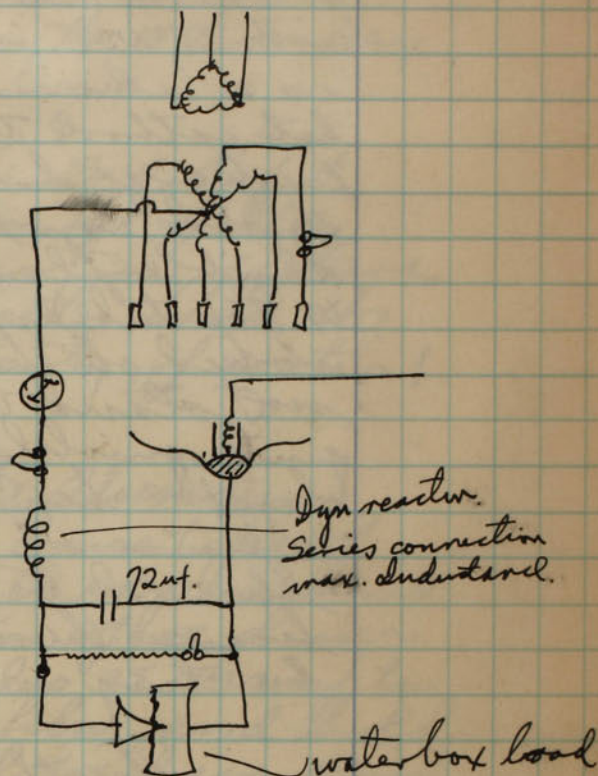 Dyn reactor.
Series connection
max. Inductance.
72 μf.
waterbox load